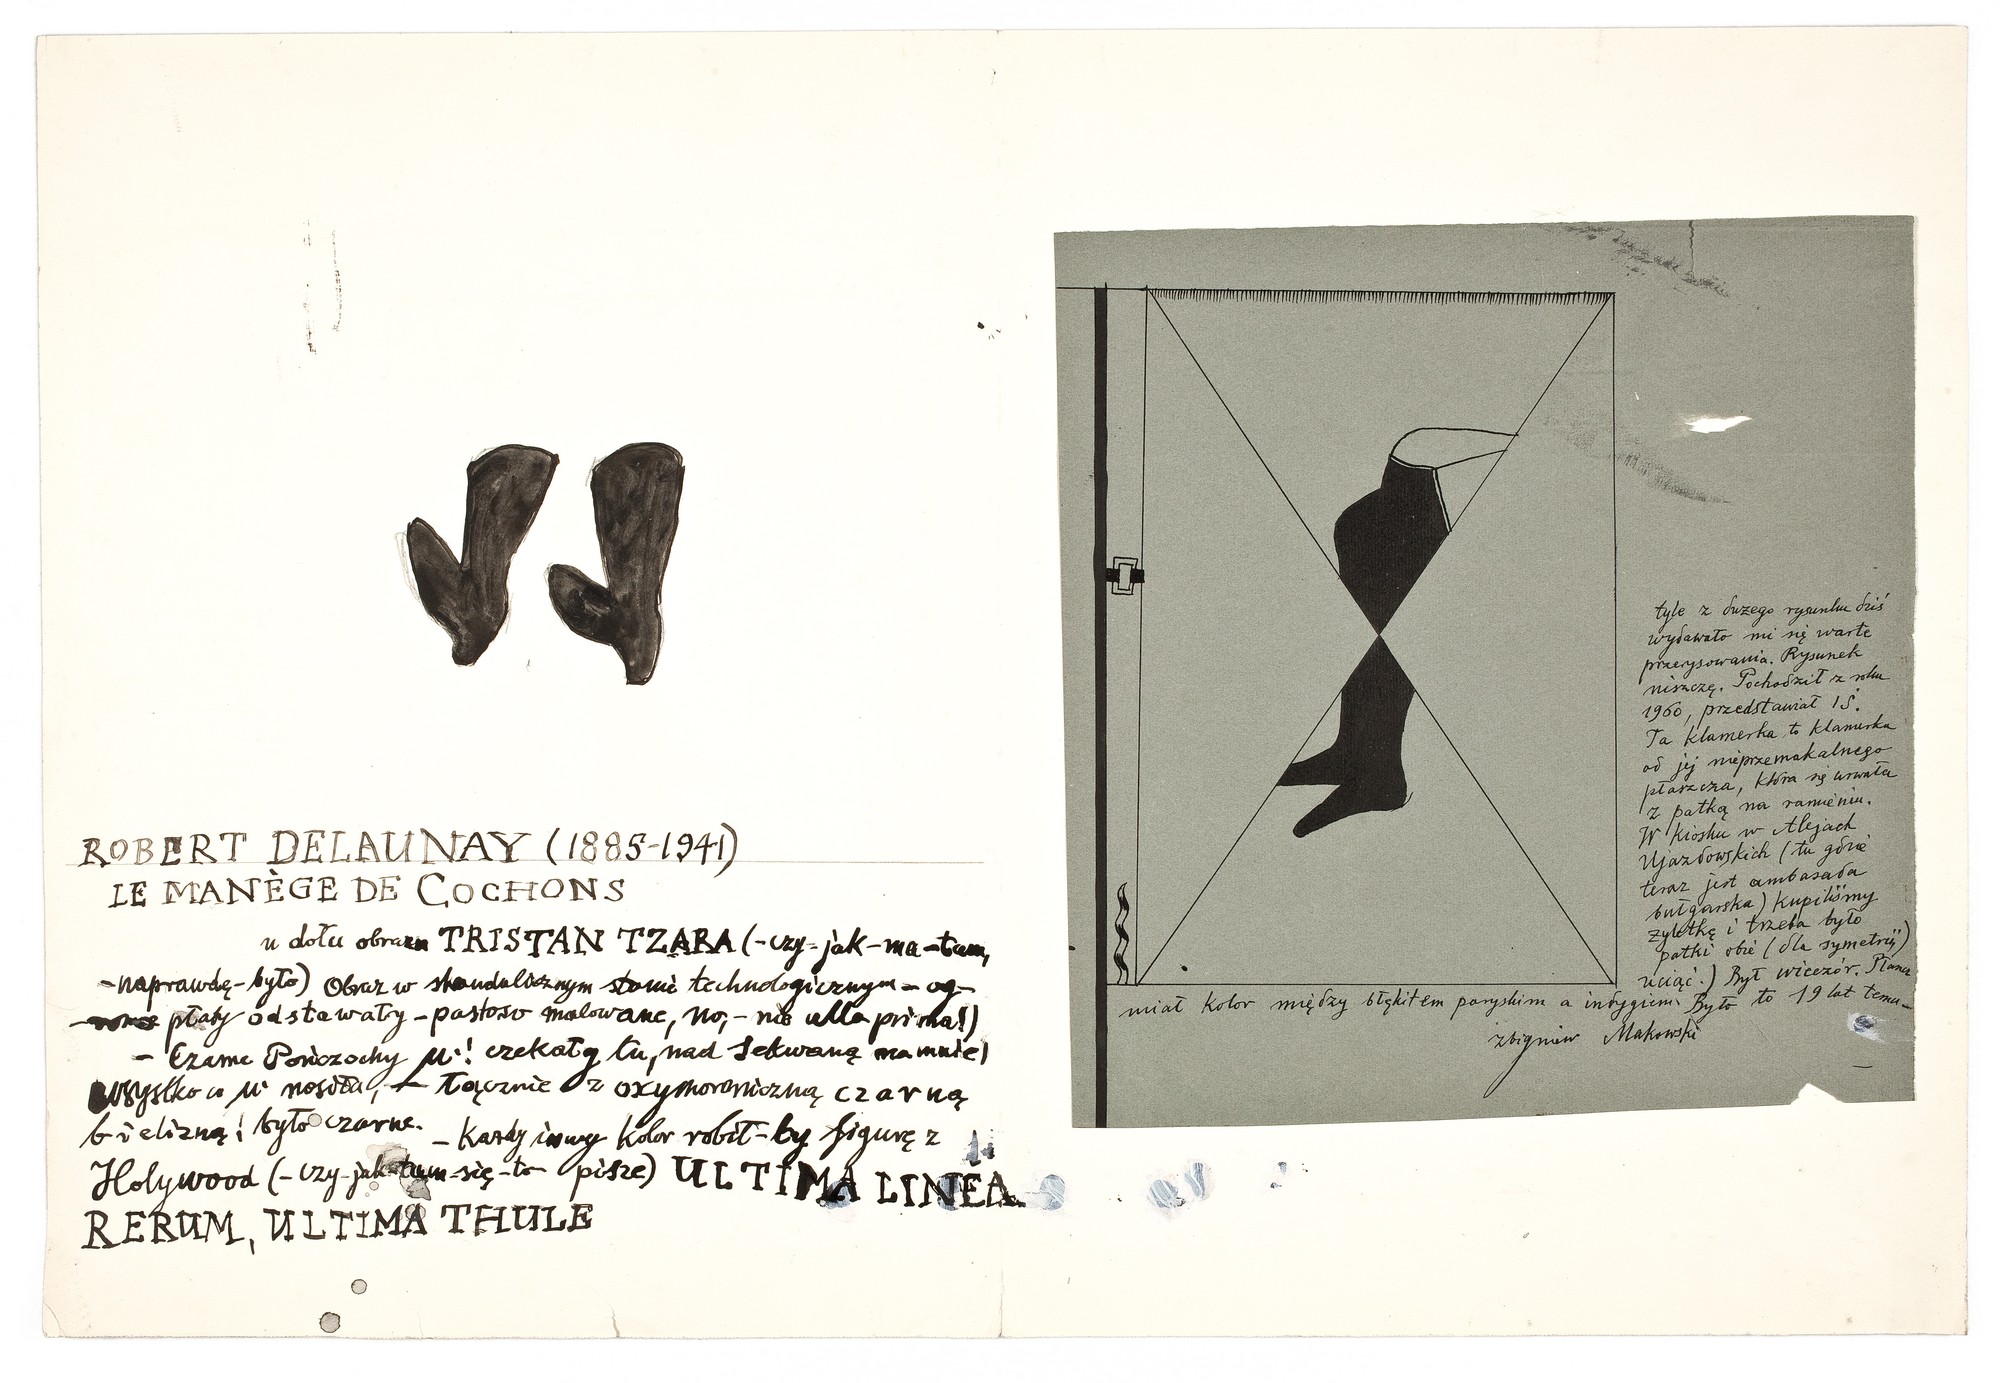 ROBERT DELAUNAY (1885-1941)
LE MANÈGE DE COCHONS
u dołu obrazu TRISTAN TZARA (-czy-jak-mu-tam,
-naprawdę-było) Obraz w skandalicznym stanie technologicznym - og-
płaty odstawały - pastoso malowane, no, - nie alla prima!)
- Czarne Pończochy M! czekały tu, nad Sekwaną na mnie!
Wszystko co M nosiła, - łącznie z oxymoroniczną czarną
bielizną! było czarne. - Każdy inny kolor robił-by figurę z
Holywood (-czy-jak-tam-się-to- pisze) ULTIMA LINEA
RERUM, ULTIMA THULE
tyle z dużego rysunku dziś
wydawało mi się warte
przerysowania. Rysunek
niszczę. Pochodził z roku
1960, przedstawiał IŚ.
Ta klamerka to klamerka
od jej nieprzemakalnego
płaszcza, która się urwała
z patką na ramieniu.
W kiosku w Alejach
Ujazdowskich (tu gdzie
teraz jest ambasada
bułgarska) kupiliśmy
żyletkę i trzeba było
patki obie (dla symetrii)
uciąć.) Był wieczór. Płaszcz
miał kolor między błękitem paryskim a indygiem. Było to 19 lat temu-
Zbigniew Makowski